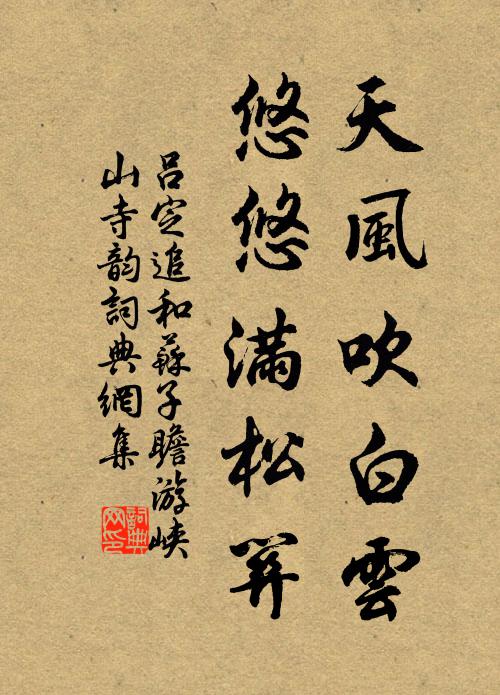 天風吹白雲
悠悠滿松關
呂定追和蘇子瞻游峽
山寺韵詞典網集
詞典
网印